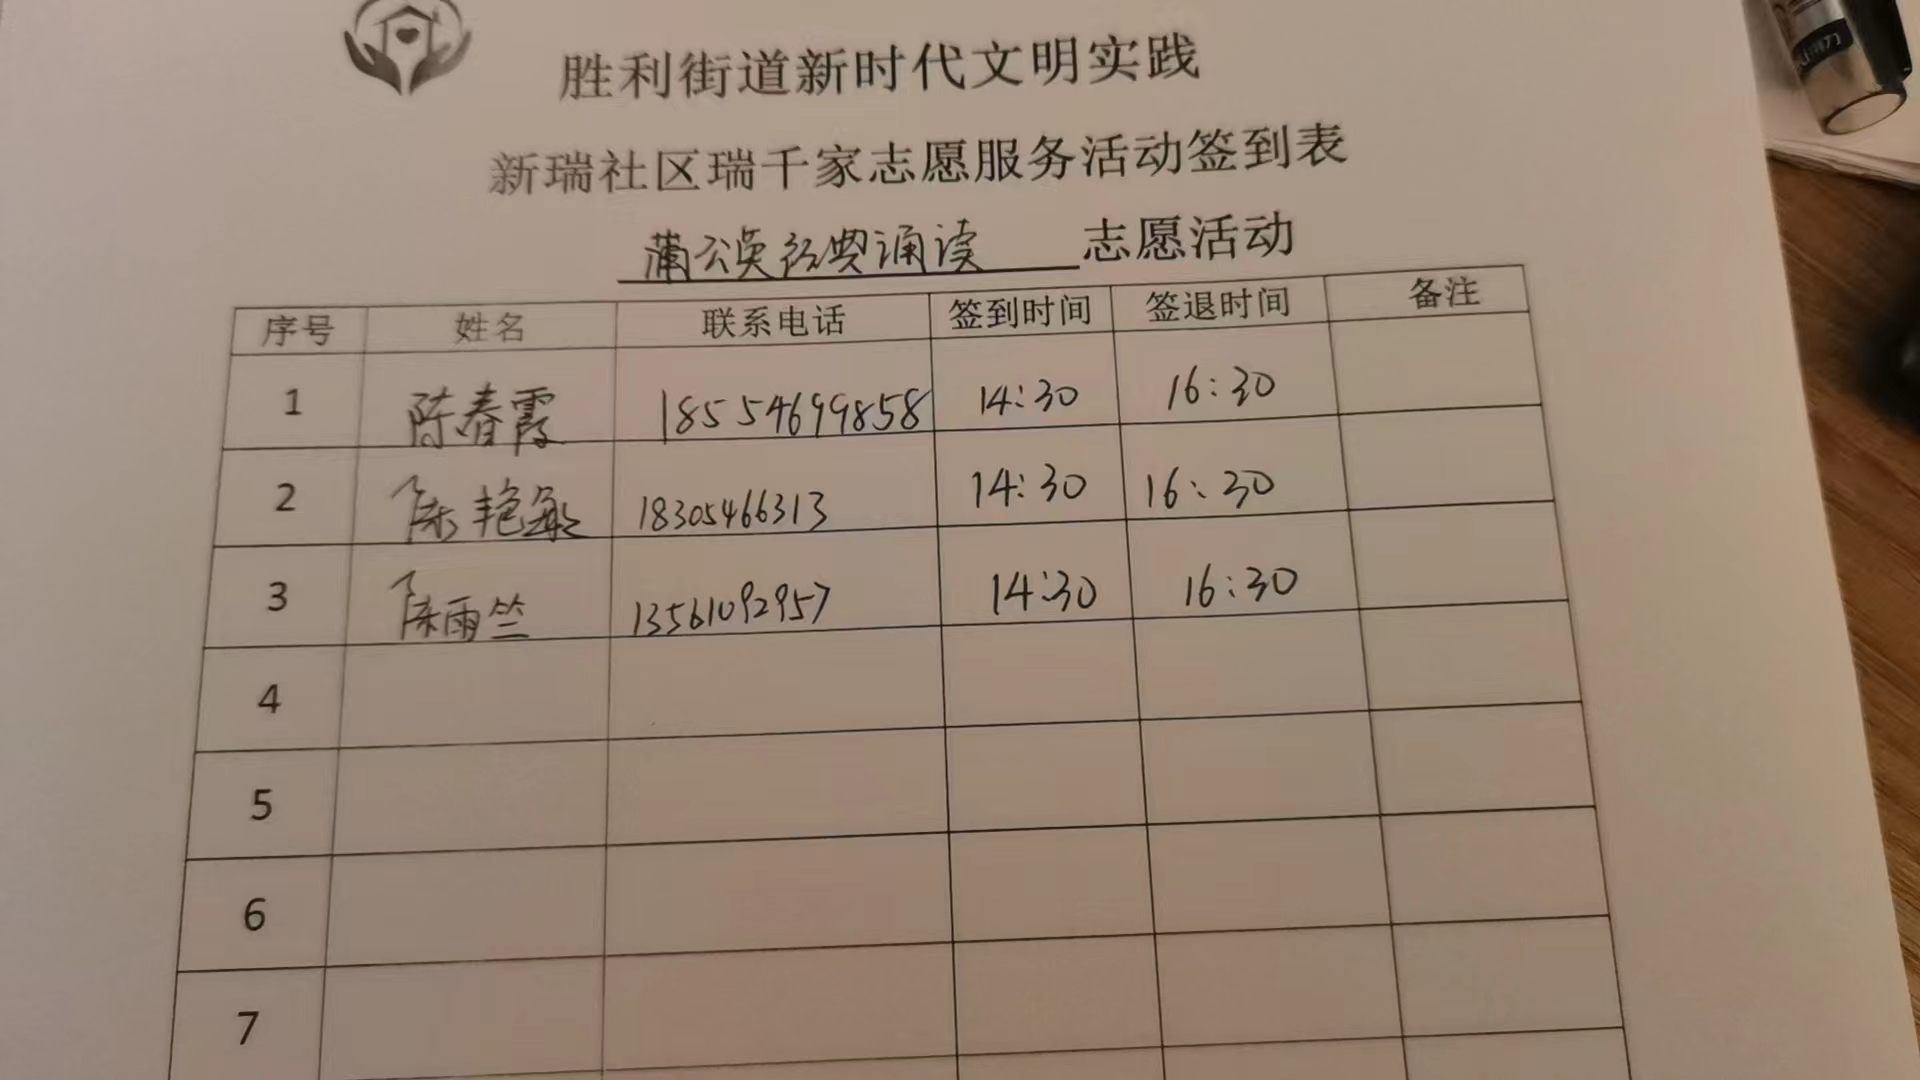 胜利街道新时代文明实践
新瑞社区瑞千家志愿服务活动签到表
蒲公英经典诵读 志愿活动
序号 姓名 联系电话 签到时间 签退时间 备注
1 陈春霞 18554699858 14:30 16:30
2 陈艳敏 18305466313 14:30 16:30
3 陈雨竺 13561092957 14:30 16:30
4
5
6
7